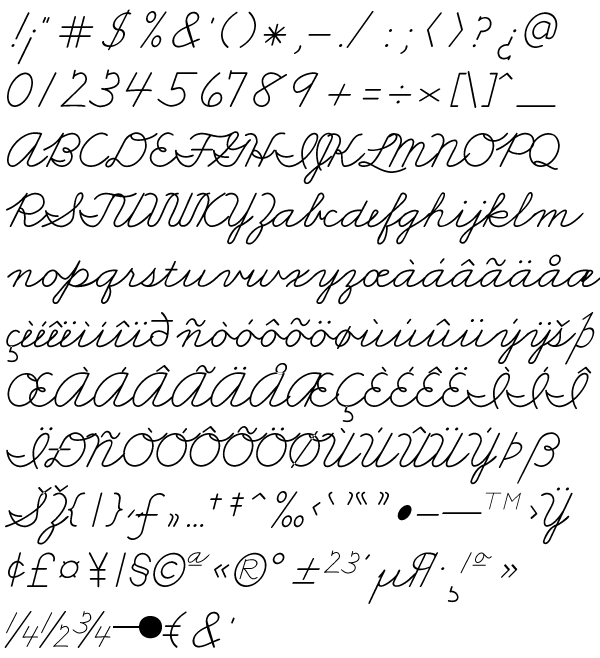 !¡"#$%&'()*,-./:;<>?¿@
0123456789+=÷×[\]^_
ABCDEFGHIJKLMNOPQ
RSTUVWXYZabcdefghijklm
nopqrstuvwxyzœàáâãäåæ
çèéêëìíîïðñòóôõöøùúûüýÿšþ
ŒÀÁÂÃÄÅÆÇÈÉÊËÌÍÎ
ÏÐÑÒÓÔÕÖØÙÚÛÜÝÞß
ŠŽ{|}‚ƒ„…†‡ˆ‰‹‘’“”•–—™›Ÿ
¢£¤¥¦§©ª«®°±²³´µ¶·¸¹º»
¼½¾—●€&'